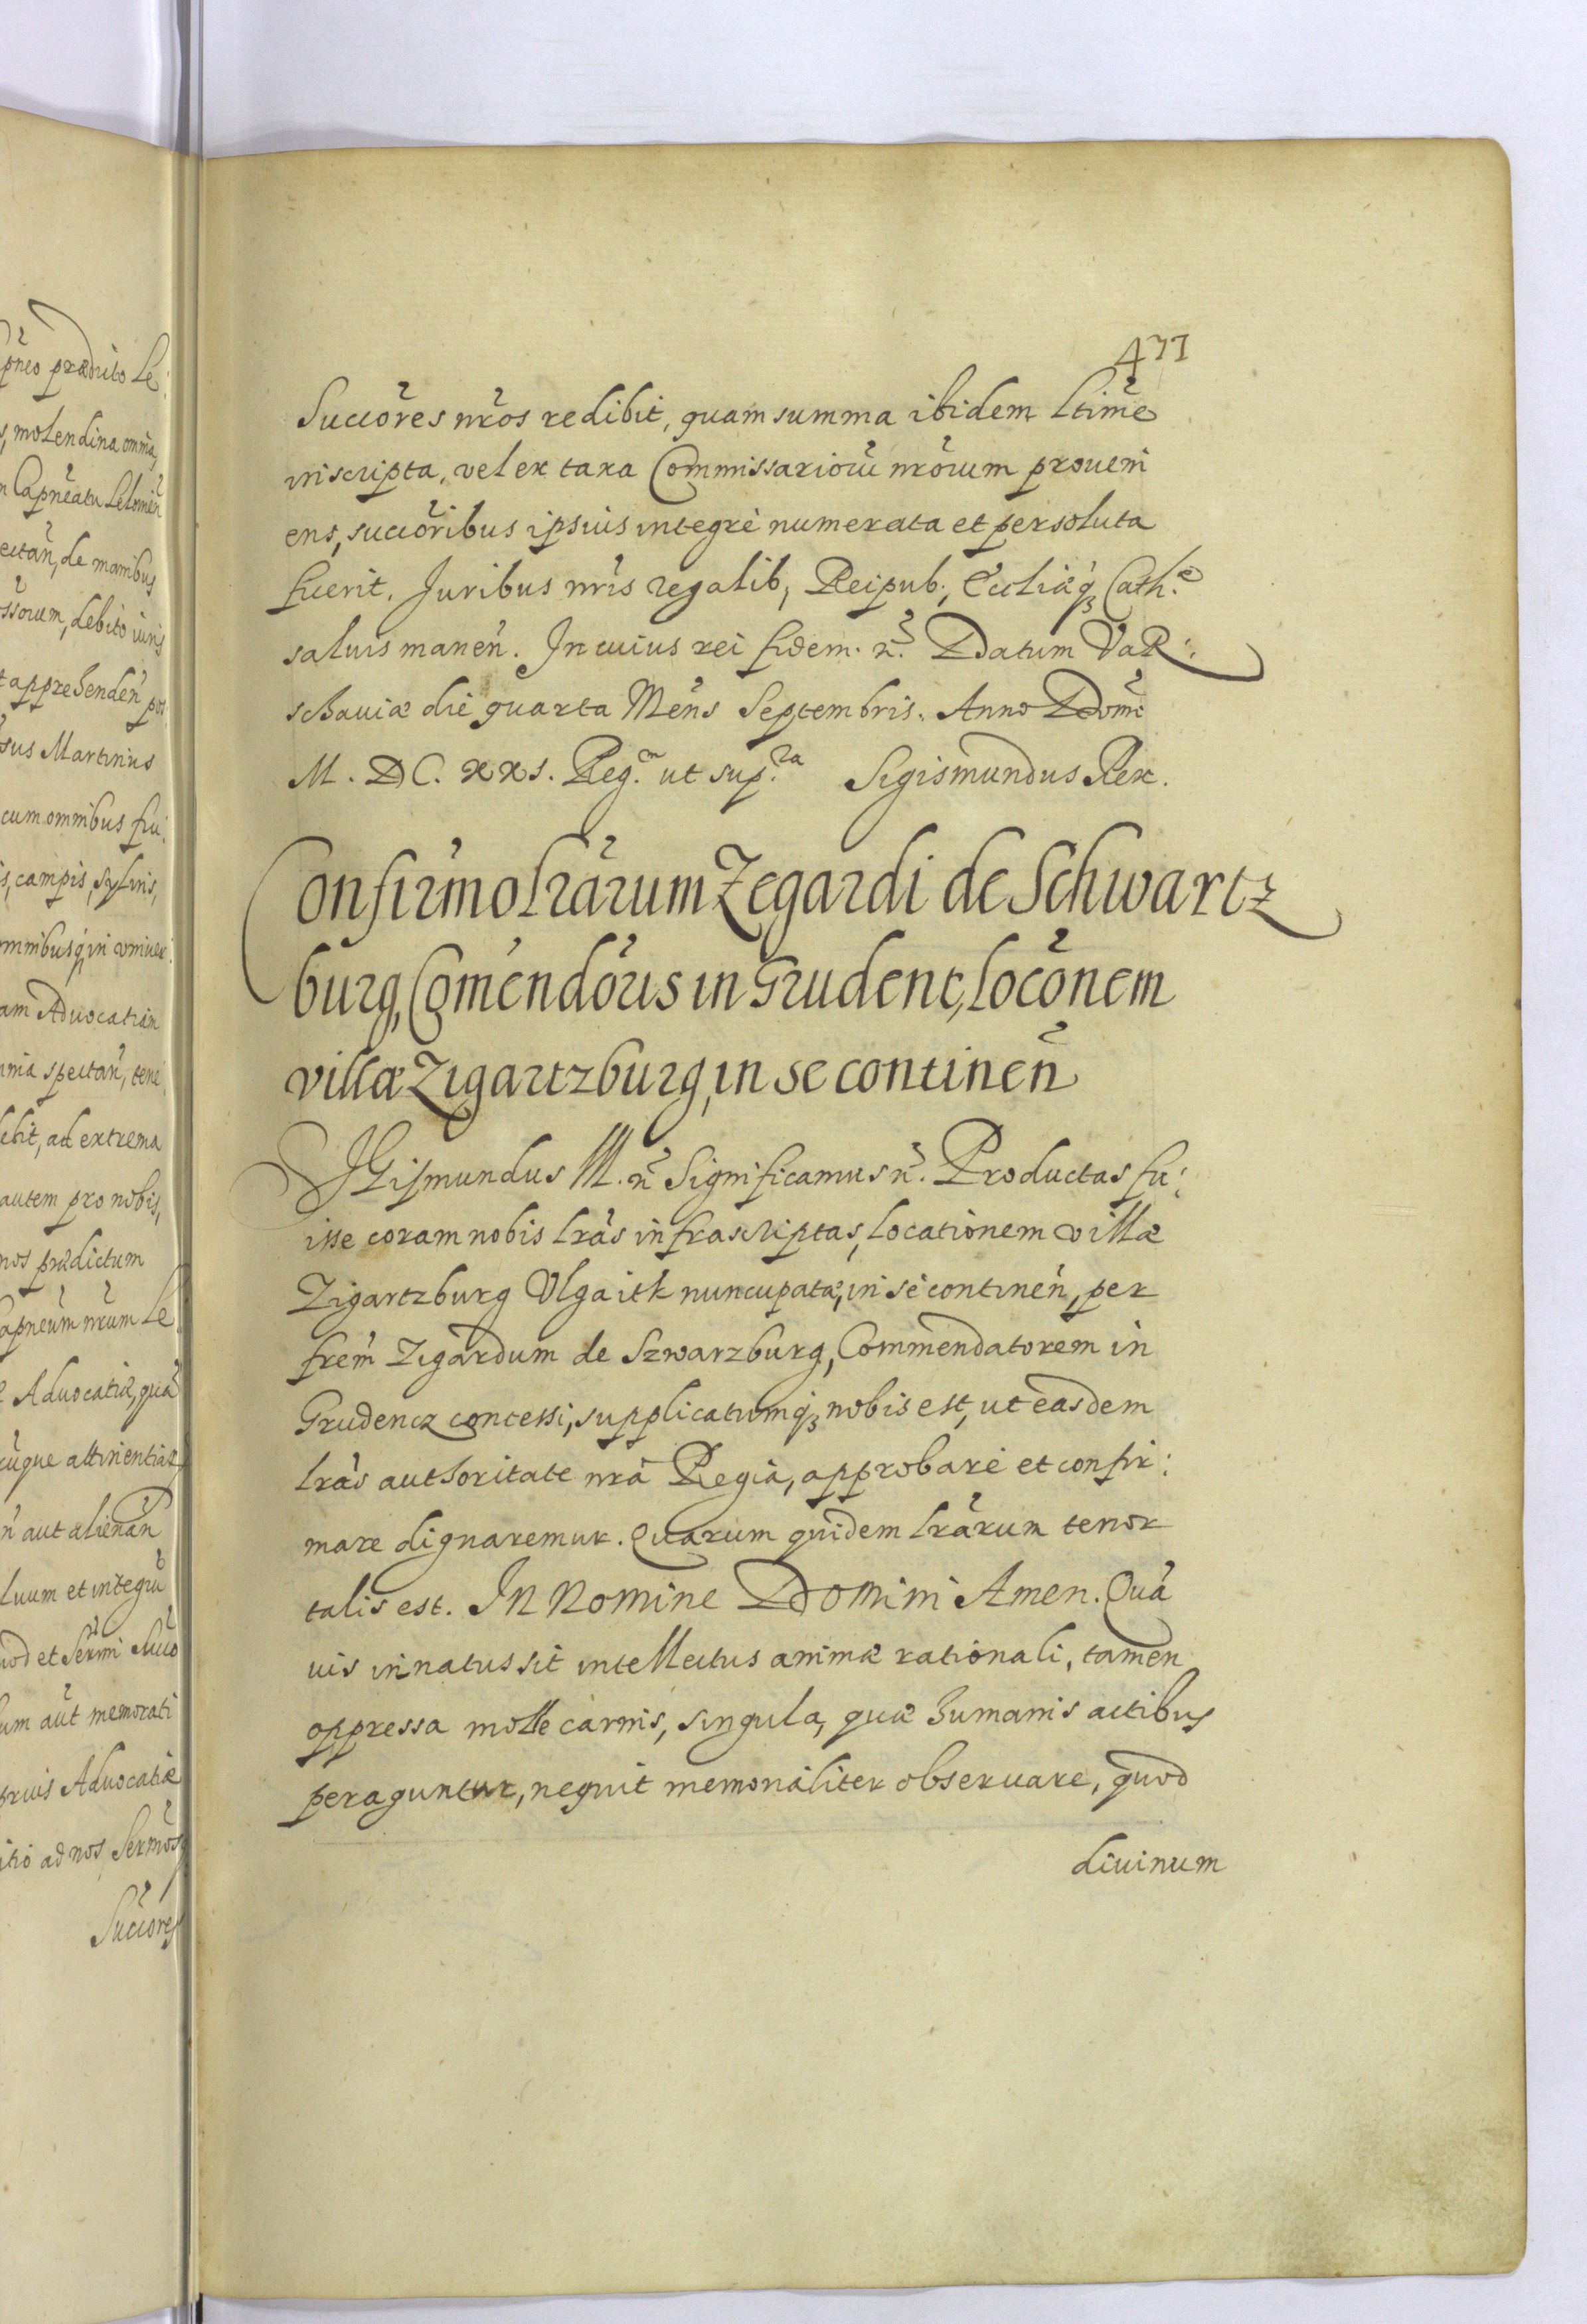 p̃neo prædicto Le:
s, molendina omnia,
n Cap̃neatu Lelouien̄
ectan̄, de manibus
ssorum, debito iuris
t apprehenden̄ pos
sus Martinus
cum omnibus fru:
is, campis, syluis,
omnibusq̨ in vniuer:
am Aduocatiam
nia spectan̄, tene
debit, ad extrema
autem pro nobis,
nos prædictum
apneum nr̃um Le
Aduocatiæ, quā
cūque attinentias
n̄ aut alienan̄
luum et integrū
uod et Serm̃i Succo
um aūt memorati
Aduocatiæ
itio ad nos, Serm̃osq
Succores
477
Succõres nr̃os redibit, quam summa ibidem Ltimē
inscripta, vel ex taxa Commissariorū nr̃orum proueni
ens, succõribus ipsius integrè numerata et persoluta
fuerit. Juribus nr̃is regalib, Reipub., Eccliæq̨ Cath:æ
saluis manen̄. In cuius rei fidem. ẽ. Datum VaR:
schauiæ die quarta Men̄s Septembris. Anno Domĩ
M. D C. xxj. Reg.m ut sup.ra Sigismundus Rex.
Confirm̃o lr̃arum Zegardi de Schwartz
burg, Com̃endõris in Grudent, Locõnem
villæ Zigartzburg, in se continen̄
SIgismundus III. ẽ Significamus ẽ. Productas fu:
isse coram nobis lr̃as infrascriptas, locationem villæ
Zigartzburg Ulgaitk nuncupatæ, in se continen̄, per
frēm Zigardum de Szwarzburg, Commendatorem in
Grudencz concessi, supplicatumq̨ nobis est, ut easdem
lr̃as authoritate nr̃a Regia, approbare et confir:
mare dignaremur. Quarum quidem lr̃arum tenor
talis est. In Nomine Domini Amen. Quā
uis innatus sit intellectus animæ rationali, tamen
oppressa molle carnis, singula, quæ humanis actibus
peraguntur, nequit memorialiter obseruare, quod
diuinum